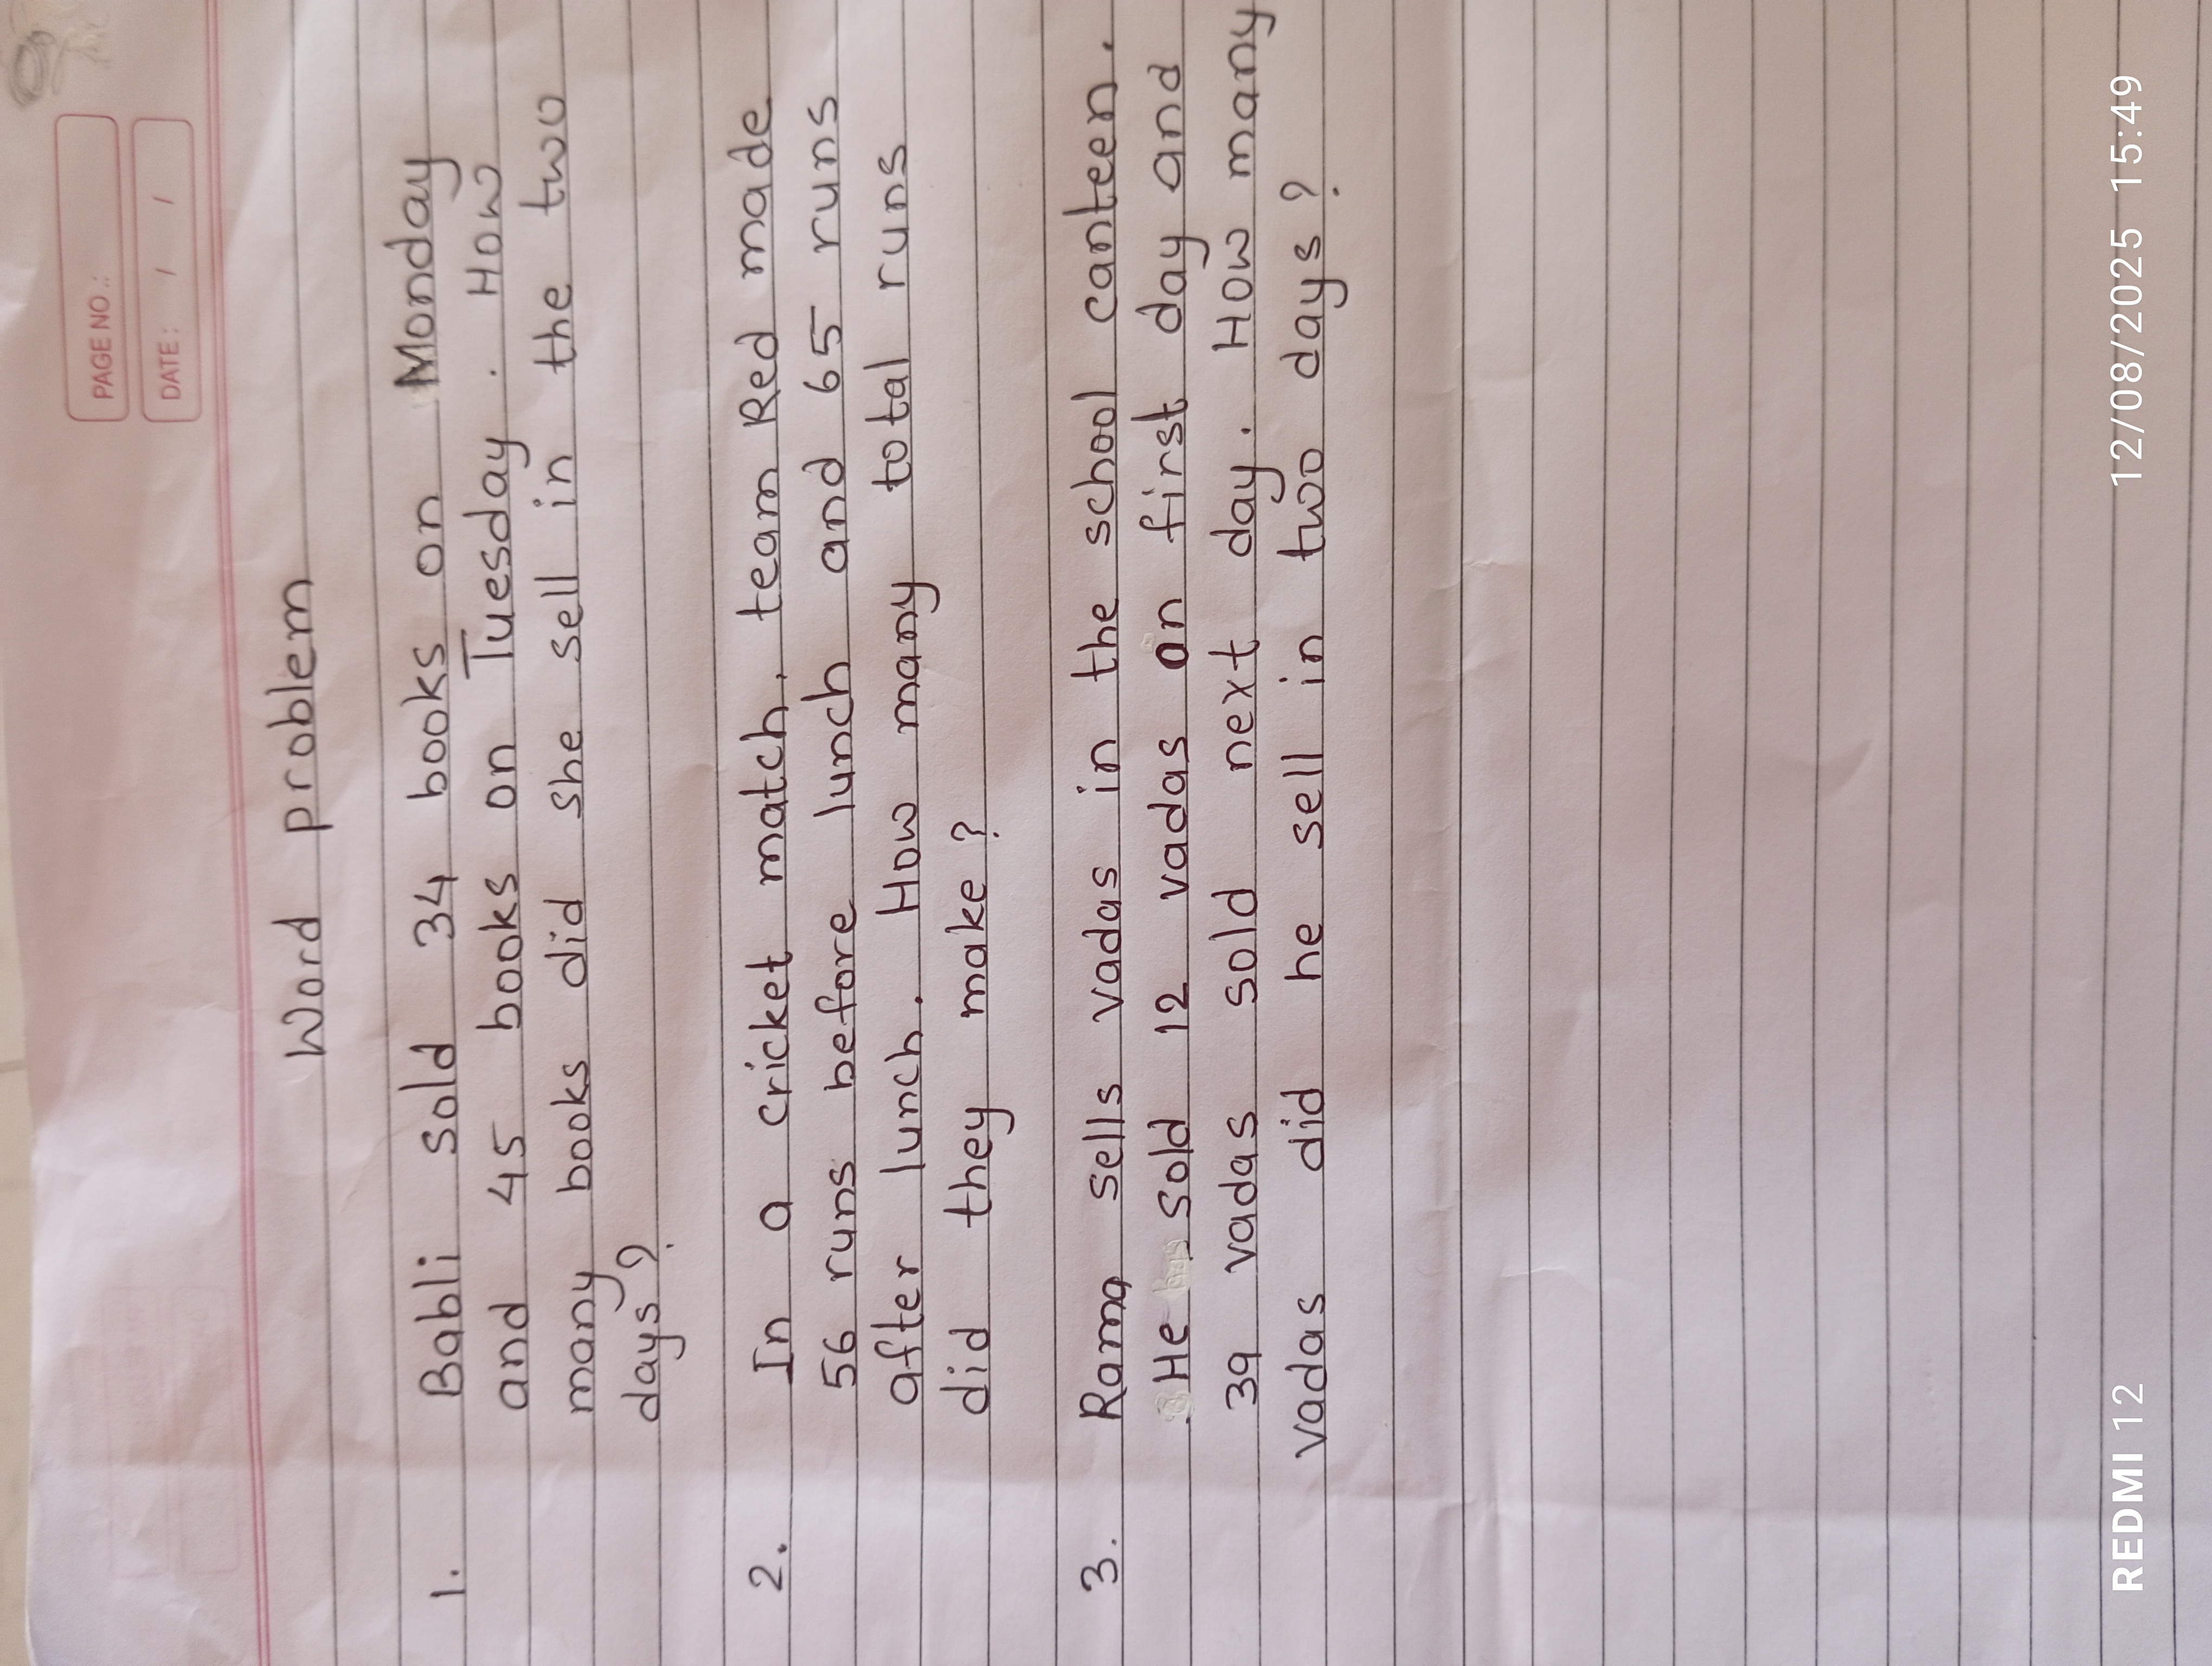 PAGE NO.:
DATE: / /
Word problem
1. Babli sold 34 books on Monday
and 45 books on Tuesday. How
many books did she sell in the two
days?
2. In a cricket match, team Red made
56 runs before lunch and 65 runs
after lunch. How many total runs
did they make?
3. Rama sells vadas in the school canteen.
He sold 12 vadas on first day and
39 vadas sold next day. How many
vadas did he sell in two days?
REDMI 12
12/08/2025 15:49